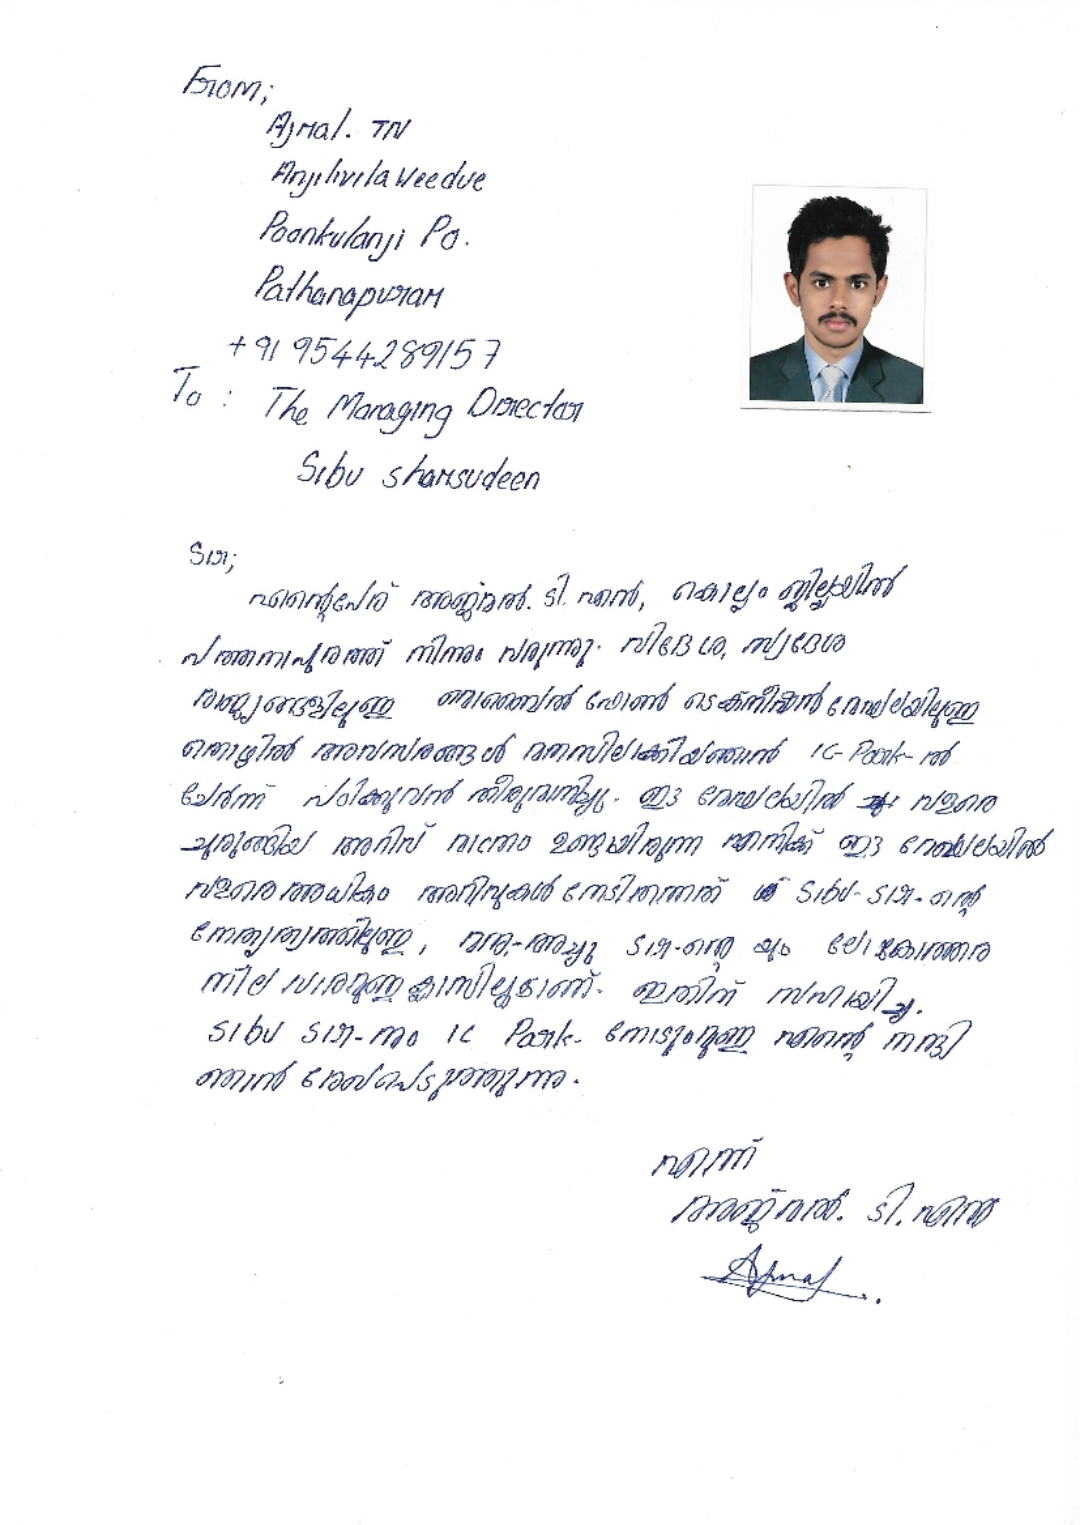 From;
Ajmal. TN
Anjilivila Veedue
Poonkulanji Po.
Pathanapuram
+91 9544289157
To : The Managing Director
Sibu Shamsudeen
Sir;
എന്റെപേര് അജ്മൽ. ടി. എൻ, കൊല്ലം ജില്ലായിൽ
പത്തനാപുരത്ത് നിന്നും വരുന്നു. വിദേശ, സ്വദേശ
രാജ്യങ്ങളിലുള്ള മൊബൈൽ ഫോൺ ടെക്നീഷ്യൻ മേഖലയിലുള്ള
തൊഴിൽ അവസരങ്ങൾ മനസിലാക്കിയഞാൻ IC-Park-ൽ
ചേർന്ന് പഠിക്കുവൻ തീരുമാനിച്ചു. ഈ മേഖലയിൽ വളരെ
ചുരുങ്ങിയ അറിവ് മാത്രം ഉണ്ടായിരുന്ന എനിക്ക് ഈ മേഖലയിൽ
വളരെഅധികം അറിവുകൾ നേടിതന്നത് Sibu-Sir-ന്റെ
നേതൃത്വത്തിലുള്ള, Sir-ന്റെ യും ലോകോത്തര
നില വാരമുള്ള ക്ലാസിലൂടാണ്. ഇതിന് സഹായിച്ച.
Sibu Sir-നും IC Park- നോടുംമുള്ള എന്റെ നന്ദി
ഞാൻ രേഖപെടുത്തുന്നു.
എന്ന്
അജ്മൽ. ടി. എൻ
Ajmal